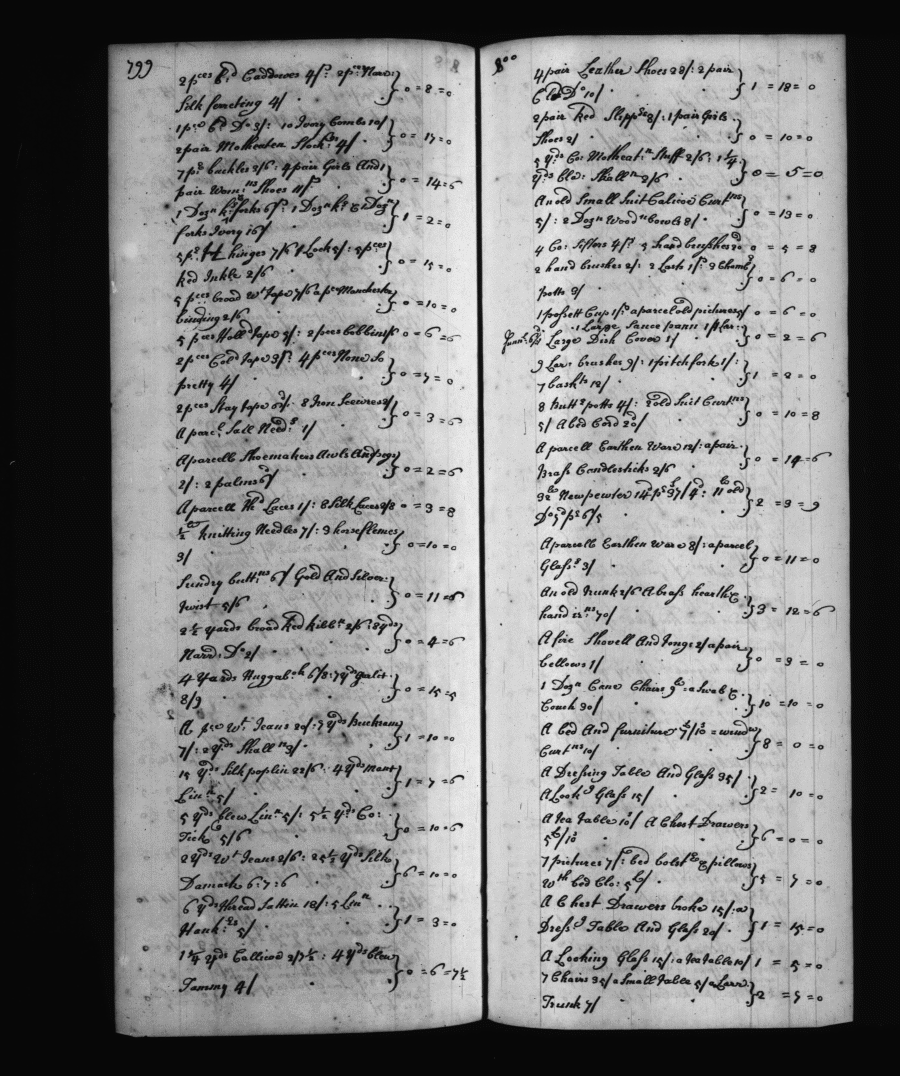 799
2 pces Cold Caddowes 4/: 2 pce Narw:
Silk ferreting 4/ } 0 = 8 = 0
1 pce Do 3/: 10 Ivory Combs 10/
2 pair Motheaten Stock:gs 4/ } 0 = 17 = 0
7 pr buckles 3/6: 4 pair Girls And 1
pair Wom:ns Shoes 11/ } 0 = 14 = 6
1 Dozn ks forks 6/: 1 Dozn ks & 1 Dozn
forks Ivory 16/ } 1 = 2 = 0
5 pr H hinges 7/6 1 Lock 5/: 5 pces
Red Inkle 2/6 } 0 = 15 = 0
5 pces broad Wt Tape 7/6 a pce Manchester
binding 2/6 } 0 = 10 = 0
5 pces Holld Tape 5/: 2 pces bobbins 0 = 6 = 6
2 pces Cold Tape 3/: 4 pces None So
pretty 4/ } 0 = 7 = 0
2 pces Stay tape 6d/: 8 Iron Scewres 2/
A parcl Sail Need:s 1/ } 0 = 3 = 6
A parcell Shoemakers Awls And pegs
2/: 2 palms 6d/ } 0 = 2 = 6
A parcell Thd Laces 1/: 8 Silk Laces 2/8 0 = 3 = 8
½ knitting Needles 7/: 3 horse flemes
3/ } 0 = 10 = 0
Sundry butt:ns 6/ Gold And Silver
Twist 5/6 } 0 = 11 = 6
2½ Yards broad Red Ribbn 2/6: 8 yds
Narr: Do 2/ } 0 = 4 = 6
4 Yards Huggabck 6/8: 7 yds Galit
8/9 } 0 = 15 = 5
A pce Wt Jeans 20/: 7 yds Buckram
7/: 2 yds Shalln 3/ } 1 = 10 = 0
15 yds Silk poplin 22/6: 4 yds Mant
Linn 5/ } 1 = 7 = 6
5 yds blew Linn 5/: 5½ yds Co:
Tick 5/6 } 0 = 10 = 6
2 yds Wt Jeans 2/6: 25½ yds Silk
Damask 6:7:6 } 6 = 10 = 0
6 yds thread Sattin 18/: 5 Linn
Hank:fs 5/ } 1 = 3 = 0
1¼ yds Callicoe 2/7½: 4 yds blew
Tammy 4/ } 0 = 6 = 7½
800
4 pair Leather Shoes 28/: 2 pair
Do 10/ } 1 = 18 = 0
2 pair Red Slipprs 8/: 1 pair Girls
Shoes 2/ } 0 = 10 = 0
5 yds Co: Motheat:n Stuff 2/6: 1¼
yds Blw: Shalln 2/6 } 0 = 5 = 0
An old Small Suit Calicoe Curtns
5/: 2 Dozn Woodn bowls 8/ } 0 = 13 = 0
4 Co: Sifters 4/: 5 hard brushes 0 = 5 = 8
2 hand brushes 2/: 2 Lasts 1/: 3 Chambr
potts 3/ } 0 = 6 = 0
1 possett Cup 1/: a parcel old pictures 0 = 6 = 0
1 Large Sauce pann 1/
Large Dish Cover 1/ } 0 = 2 = 6
9 Lar: brushes 9/: 1 pitch fork 1/:
7 baskts 12/ } 1 = 2 = 0
8 Buttr potts 4/: 2 old Suit Curtns
5/ A bed Cord 20/ } 0 = 10 = 8
A parcell Earthen Ware 12/: a pair
Brass Candlesticks 2/6 } 0 = 14 = 6
32lb New pewter 37/4: 11lb old
Do 5d pr 6/5 } 2 = 3 = 9
A parcell Earthen Ware 8/: a parcel
Glass:s 3/ } 0 = 11 = 0
An old Trunk 2/6 A brass hearth &
hand 70/ } 3 = 12 = 6
A fire Shovell And Tongs 2/ a pair
bellows 1/ } 0 = 3 = 0
1 Dozn Cane Chairs 9lb: a Swab &
Couch 30/ } 10 = 10 = 0
A bed And furniture 7/10 = window
Curtns 10/ } 8 = 0 = 0
A Dressing Table And Glass 35/
A Lookg Glass 15/ } 2 = 10 = 0
A tea Table 10/ A Chest Drawers
5/10 } 6 = 0 = 0
7 pictures 7/: bed bolstr & pillows
Wth bed Clo: 5/ } 5 = 7 = 0
A Chest Drawers broke 15/: a
Dressg Table And Glass 20/ } 1 = 15 = 0
A Looking Glass 15/: a tea table 10/ 1 = 5 = 0
7 Chairs 35/ a Small table 5/ a Large
Trunk 7/ } 2 = 5 = 0